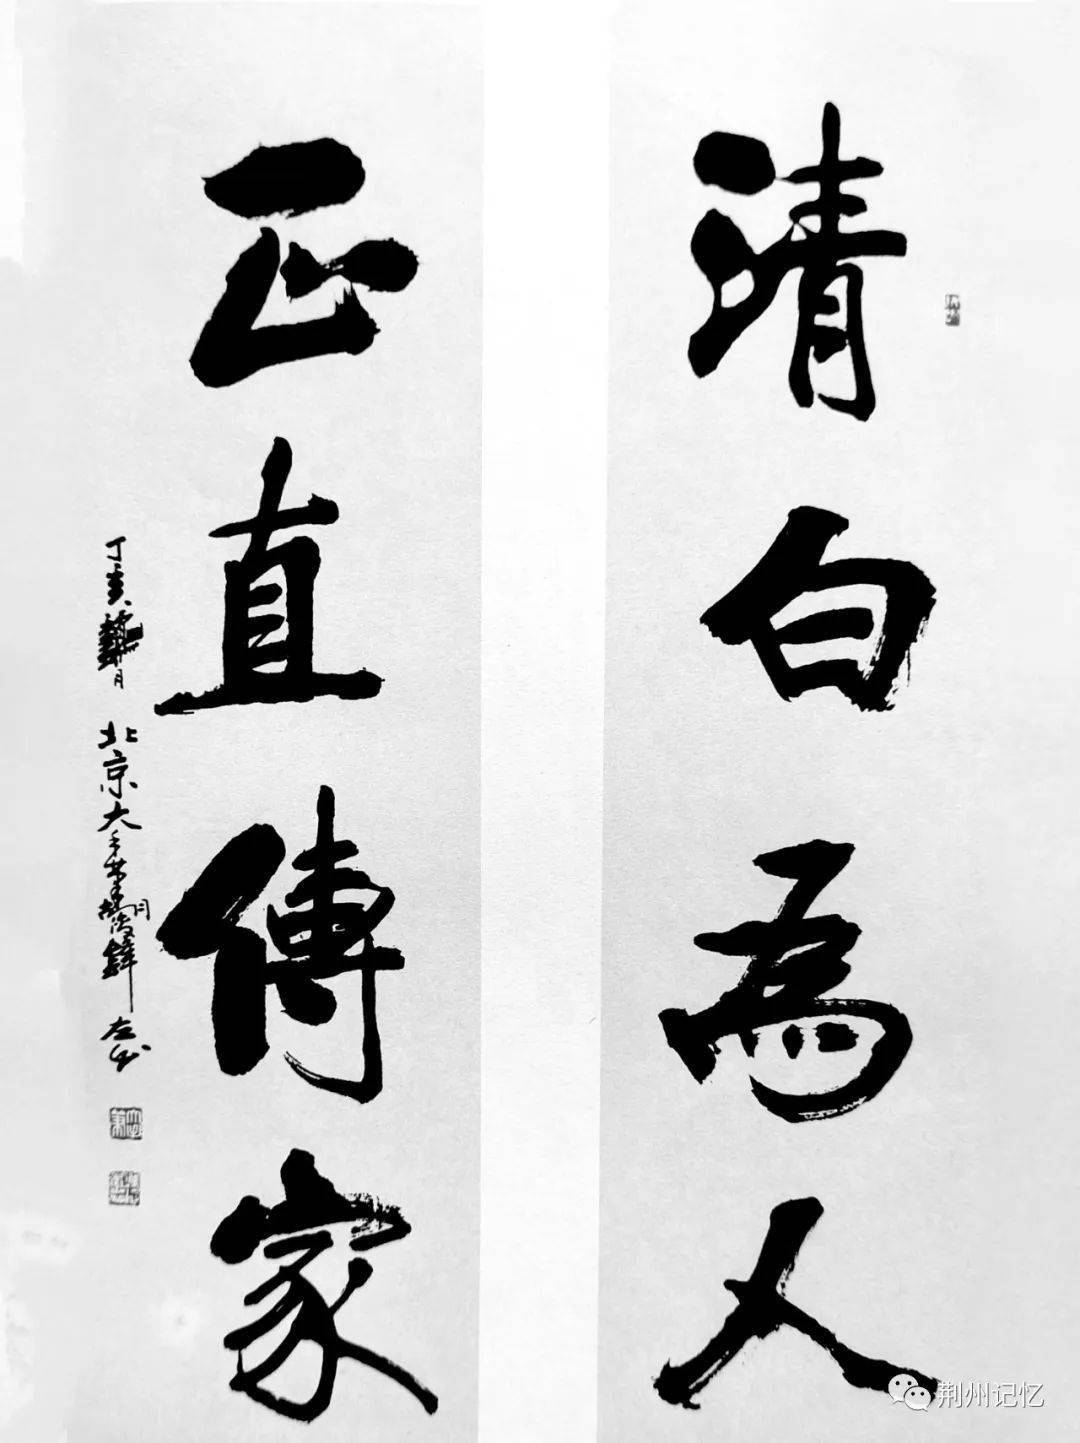 清白为人
正直傳家
丁亥
月
北京大
荆州记忆